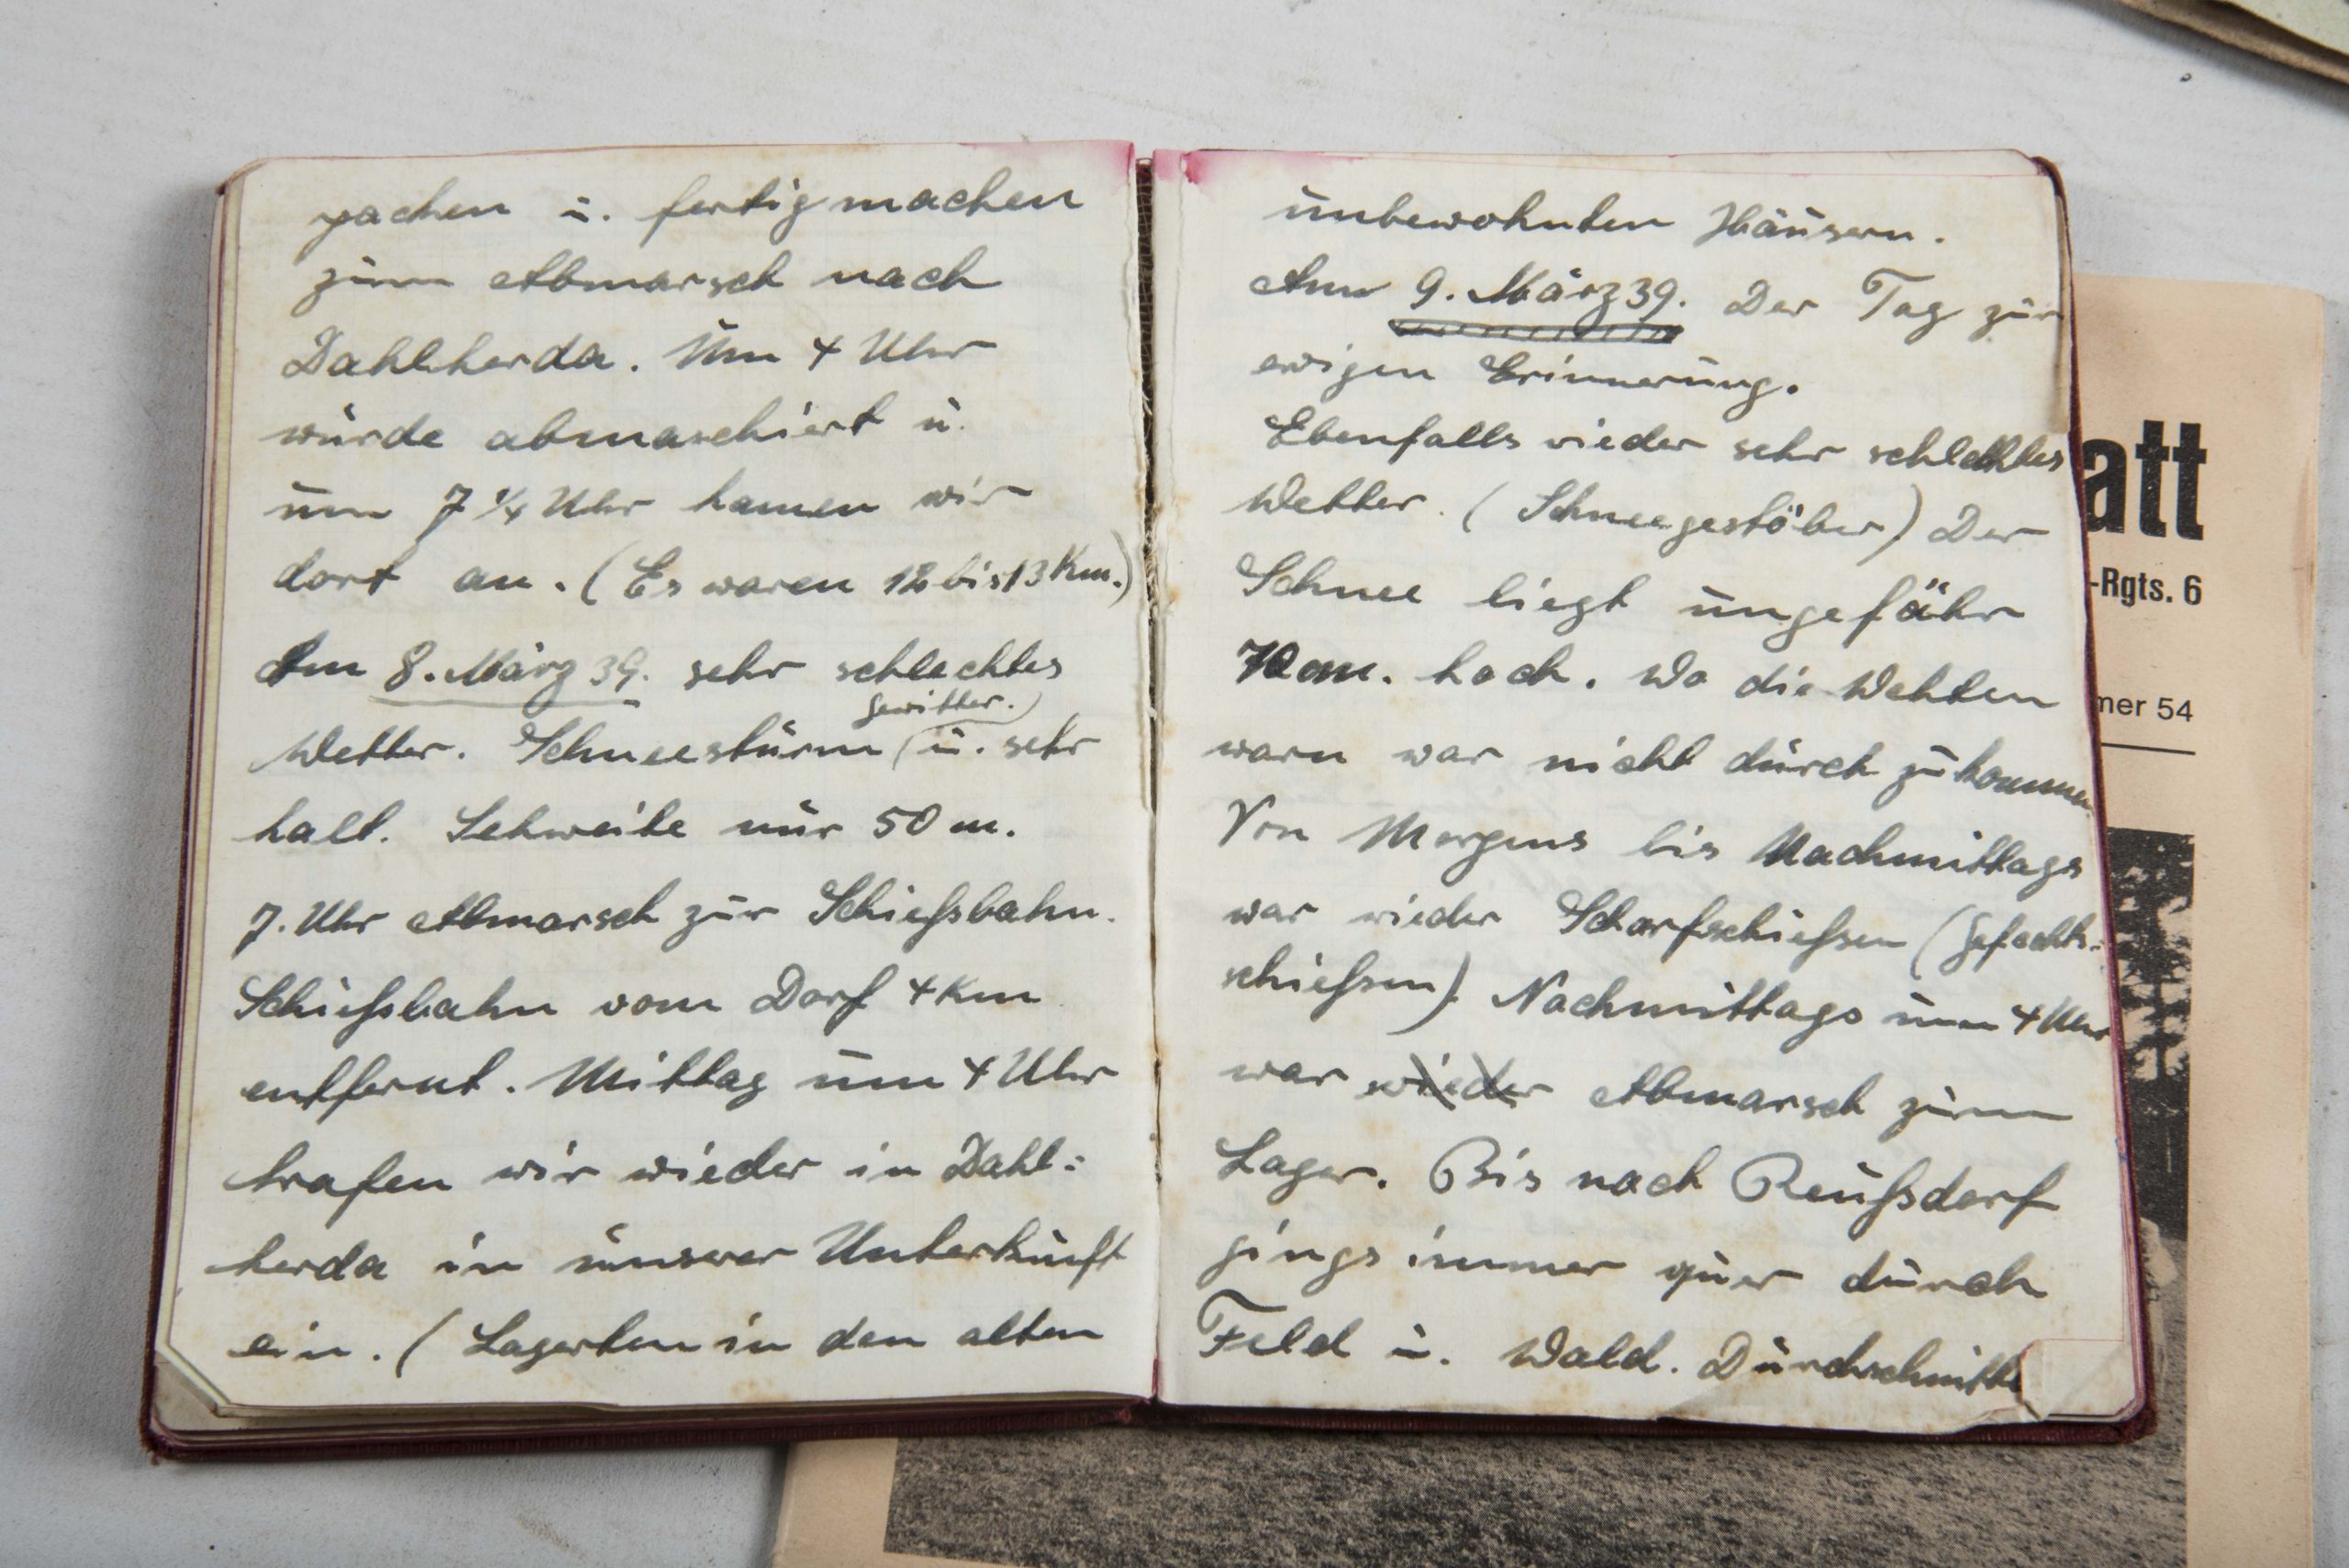 pachen u. fertigmachen
zum Abmarsch nach
Dahlherda. Um 4 Uhr
wurde abmaschiert u.
um 7 1/4 Uhr kamen wir
dort an. (Es waren 12 bis 13 Km.)
Am 8. März 39. sehr schlechtes
Gewitter.
Wetter. Schneesturm (u. sehr
kalt. Sehweite nur 50 m.
7. Uhr Abmarsch zur Schießbahn.
Schießbahn vom Dorf 4 Km
entfernt. Mittag um 4 Uhr
trafen wir wieder in Dahl:
herda in unserer Unterkunft
ein. (Lagerten in den alten
unbewohnten Häusern.
Am 9. März 39. Der Tag zur
ewigen Erinnerung.
Ebenfalls wieder sehr schlechtes
Wetter. (Schneegestöber) Der
Schnee liegt ungefähr
70 cm. hoch. Wo die Wehten
warn war nicht durch zu kommen
Von Morgens bis Nachmittags
war wieder Scharfschießen (Gefechts:
schießen). Nachmittags um 4 Uhr
war wieder Abmarsch zum
Lager. Bis nach Reußsdorf
gings immer quer durch
Feld u. Wald. Durchschnitts
att
-Rgts. 6
mer 54